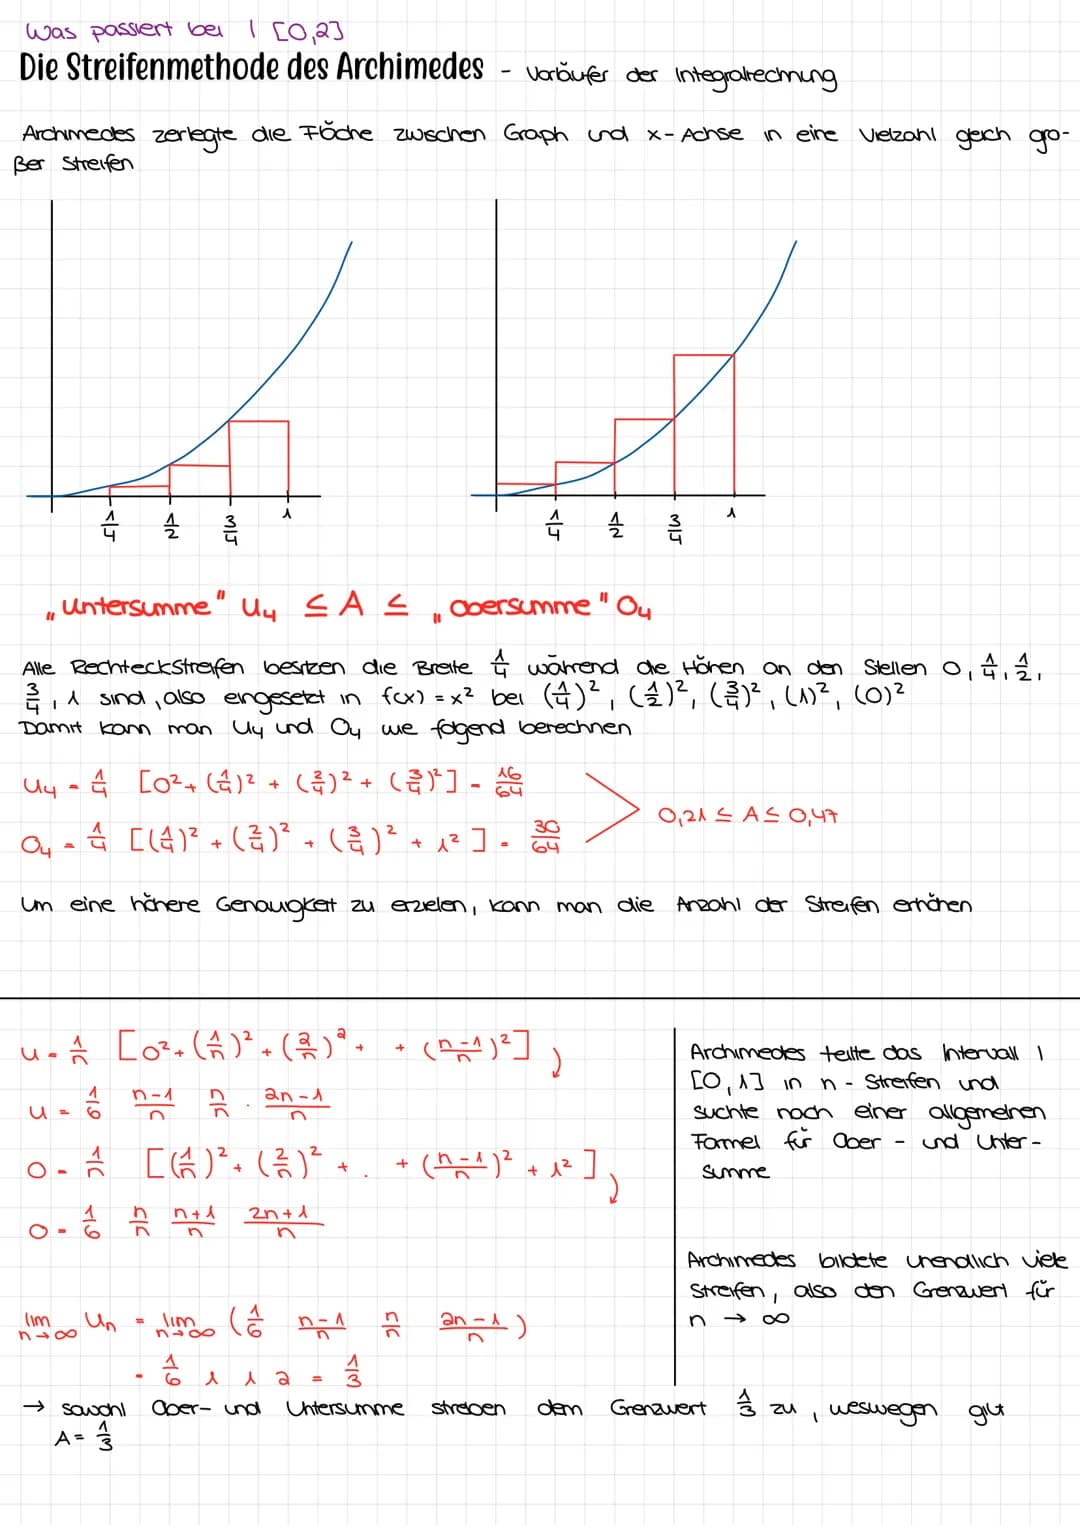 Was passiert bei I [0,2]
Die Streifenmethode des Archimedes - Vorläufer der Integralrechnung
Archimedes zerlegte die Fläche zwischen Graph und x-Achse in eine Vielzahl gleich gro-
ßer Streifen
1/4 1/2 3/4 1
1/4 1/2 3/4 1
„Untersumme" U₄ ≤ A ≤ „Obersumme" O₄
Alle Rechteckstreifen besitzen die Breite 1/4 während die Höhen an den Stellen 0, 1/4, 1/2,
3/4, 1 sind, also eingesetzt in f(x) = x² bei (1/4)², (1/2)², (3/4)², (1)², (0)²
Damit kann man U₄ und O₄ wie folgend berechnen
U₄ = 1/4 [0² + (1/4)² + (2/4)² + (3/4)²] = 16/64
0,21 ≤ A ≤ 0,47
O₄ = 1/4 [(1/4)² + (2/4)² + (3/4)² + 1²] = 30/64
Um eine höhere Genauigkeit zu erzielen, kann man die Anzahl der Streifen erhöhen
U = 1/n [0² + (1/n)² + (2/n)² + + (n-1/n)²]
U = 1/6 n-1/n n/n · 2n-1/n
O = 1/n [(1/n)² + (2/n)² + . + (n-1/n)² + 1²]
O = 1/6 n/n n+1/n 2n+1/n
lim n→∞ Uₙ = lim n→∞ (1/6 n-1/n n/n 2n-1/n)
= 1/6 1 1 2 = 1/3
Archimedes teilte das Intervall I
[0,1] in n - Streifen und
suchte nach einer allgemeinen
Formel für Ober - und Unter-
summe
Archimedes bildete unendlich viele
Streifen, also den Grenzwert für
n → ∞
→ sowohl Ober- und Untersumme streben dem Grenzwert 1/3 zu, weswegen gilt
A = 1/3